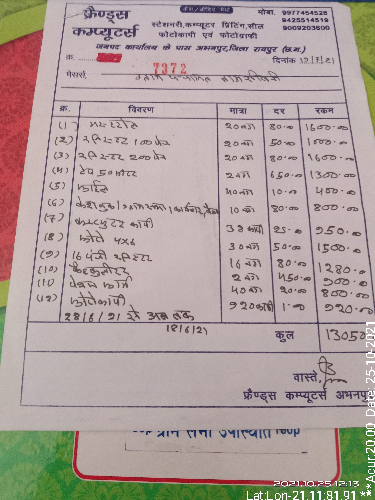 फ्रैण्ड्स
कम्प्यूटर्स
मोबा. 9977454528
9425514519
9009203600
स्टेशनरी,कम्प्यूट प्रिंटिंग,सील
फोटोकापी एवं फोटोग्राफी
जनपद कार्यालय के पास अभनपुर,जिला रायपुर (छ.ग.)
क्र.
दिनांक 12/7/21
7372
मेसर्स ग्राम पंचायत
क्र. विवरण मात्रा दर रकम
(1) 20नग 80.00 1600.00
(2) रजिस्टर 100 पेज 20नग 50.00 1000.00
(3) रजिस्टर 200 पेज 20नग 80.00 1600.00
(4) टेप 50 मीटर 2नग 650.00 1300.00
(5) फाईल 40नग 10.00 400.00
(6) केशबुक 10नग 80.00 800.00
(7) कम्प्युटर कापी 38 कापी 25.00 950.00
(8) फोटो 4x6 30नग 50.00 1500.00
(9) 16 पंजी रजिस्टर 16नग 80.00 1280.00
(10) केल्कुलेटर 2नग 450.00 900.00
(11) पेंशन फार्म 40नग 20.00 800.00
(12) फोटोकापी 920कापी 1.00 920.00
28/6/21 से अब तक
18/6/21
कुल 13050
वास्ते,
फ्रैण्ड्स कम्प्यूटर्स अभनपु
ग्राम सभा उपस्थिति
2021.10.25 12:13
Lat:Lon-21.11:81.91
***Acur:20.00 Date, 25-10-2021